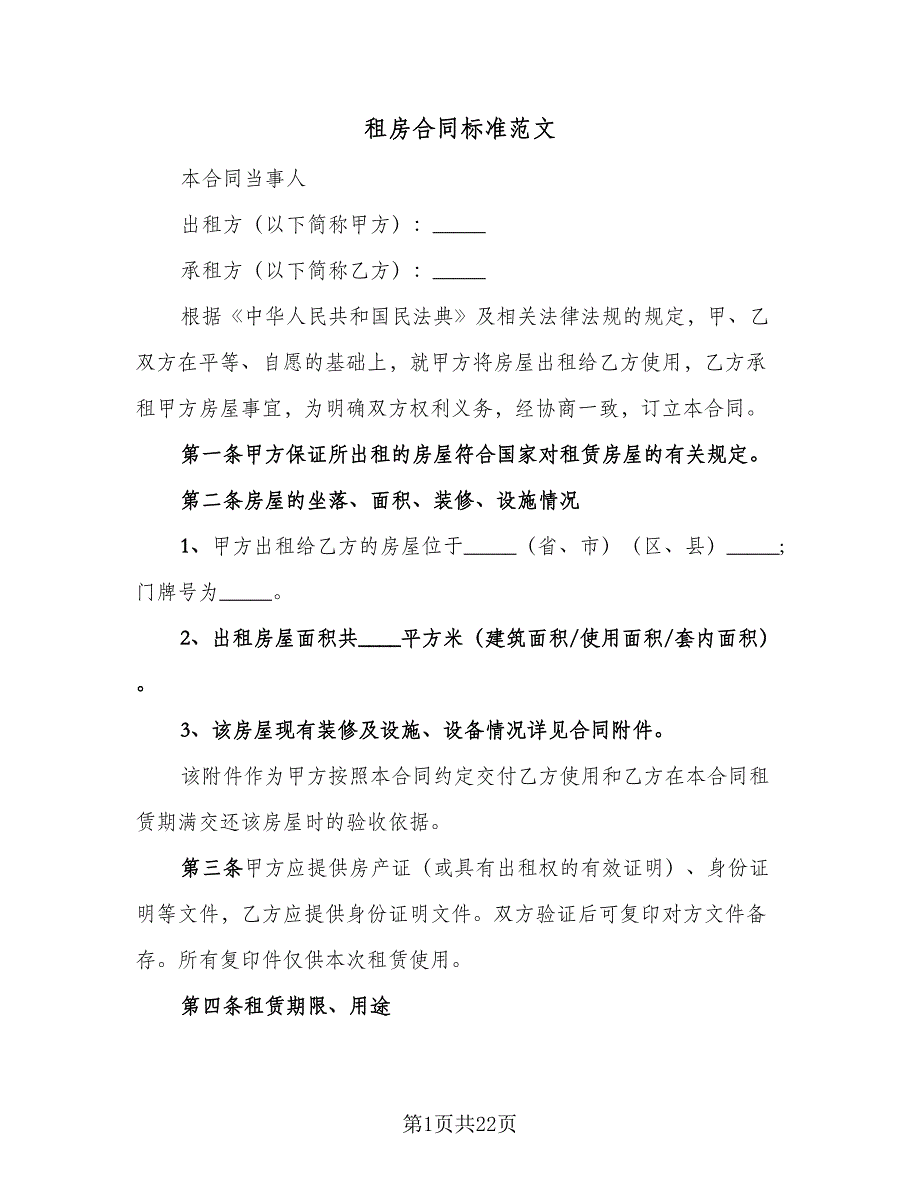 租房合同标准范文
本合同当事人
出租方（以下简称甲方）：_____
承租方（以下简称乙方）：_____
根据《中华人民共和国民法典》及相关法律法规的规定，甲、乙
双方在平等、自愿的基础上，就甲方将房屋出租给乙方使用，乙方承
租甲方房屋事宜，为明确双方权利义务，经协商一致，订立本合同。
第一条甲方保证所出租的房屋符合国家对租赁房屋的有关规定。
第二条房屋的坐落、面积、装修、设施情况
1、甲方出租给乙方的房屋位于_____（省、市）（区、县）_____;
门牌号为_____。
2、出租房屋面积共____平方米（建筑面积/使用面积/套内面积）
。
3、该房屋现有装修及设施、设备情况详见合同附件。
该附件作为甲方按照本合同约定交付乙方使用和乙方在本合同租
赁期满交还该房屋时的验收依据。
第三条甲方应提供房产证（或具有出租权的有效证明）、身份证
明等文件，乙方应提供身份证明文件。双方验证后可复印对方文件备
存。所有复印件仅供本次租赁使用。
第四条租赁期限、用途
第1页共22页